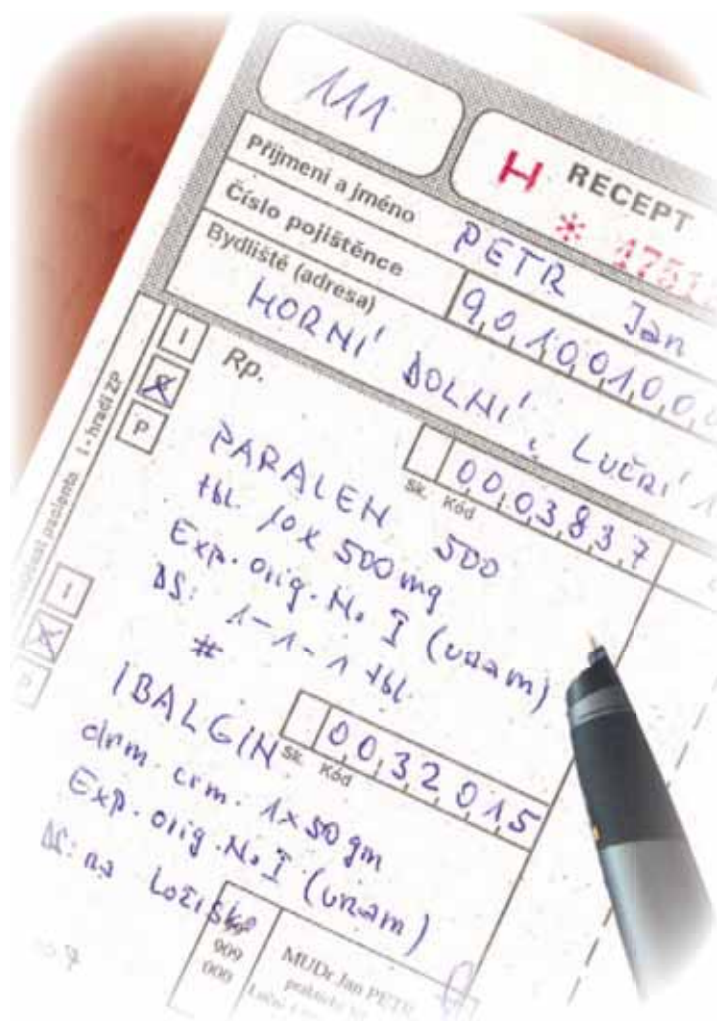 111
H RECEPT
Příjmení a jméno PETR Jan
Číslo pojištěnce 9010010,0
Bydliště (adresa)
HORNÍ DOLNÍ, LUČNÍ 1
I - hradí ZP
I
P
Rp.
Sk. Kód 0003837
PARALEN 500
tbl. 10x 500 mg
Exp. orig. No I (unam)
DS: 1-1-1 tbl.
#
I
Sk. Kód 0032015
IBALGIN
drm. crm. 1x50 gm
Exp. orig. No I (unam)
DS: na Ložisko
909
000
MUDr. Jan PETR